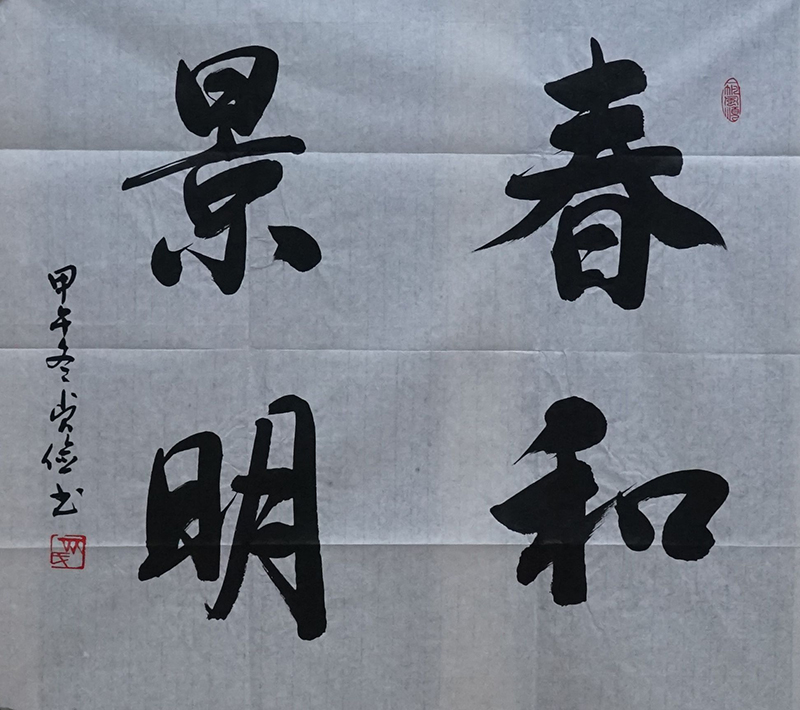 春和
景明
甲午冬尚俭书